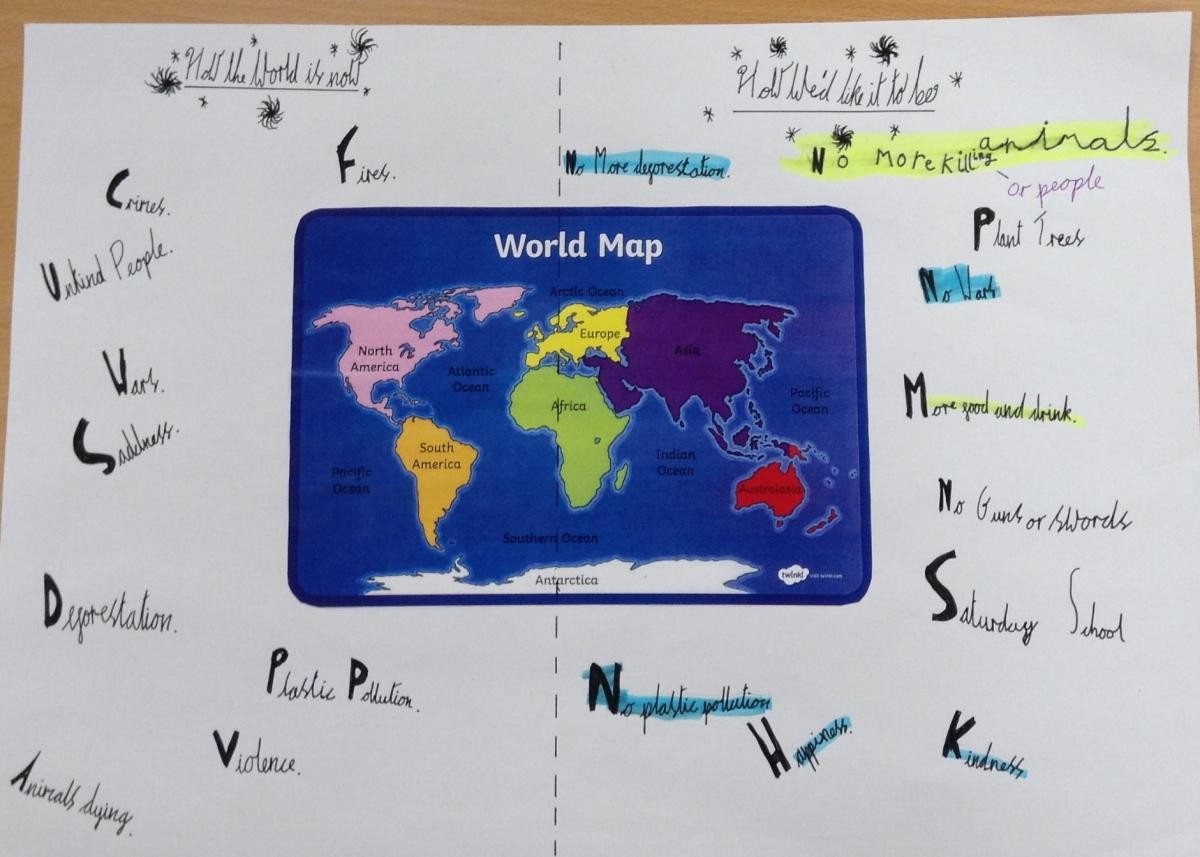 How the World is now
How We'd like it to be
Fires.
Crimes.
Unkind People.
Wars.
Saddness.
Deforestation.
Plastic Pollution.
Violence.
Animals dying.
No More deforestation.
No more killing animals.
or people
Plant Trees
No Wars
More food and drink.
No Guns or swords
Saturday School
No plastic pollution
Happiness.
Kindness
World Map
Arctic Ocean
Europe
Asia
North
America
Atlantic
Ocean
Africa
Pacific
Ocean
South
America
Indian
Ocean
Pacific
Ocean
Australasia
Southern Ocean
Antarctica
twinkl visit twinkl.com